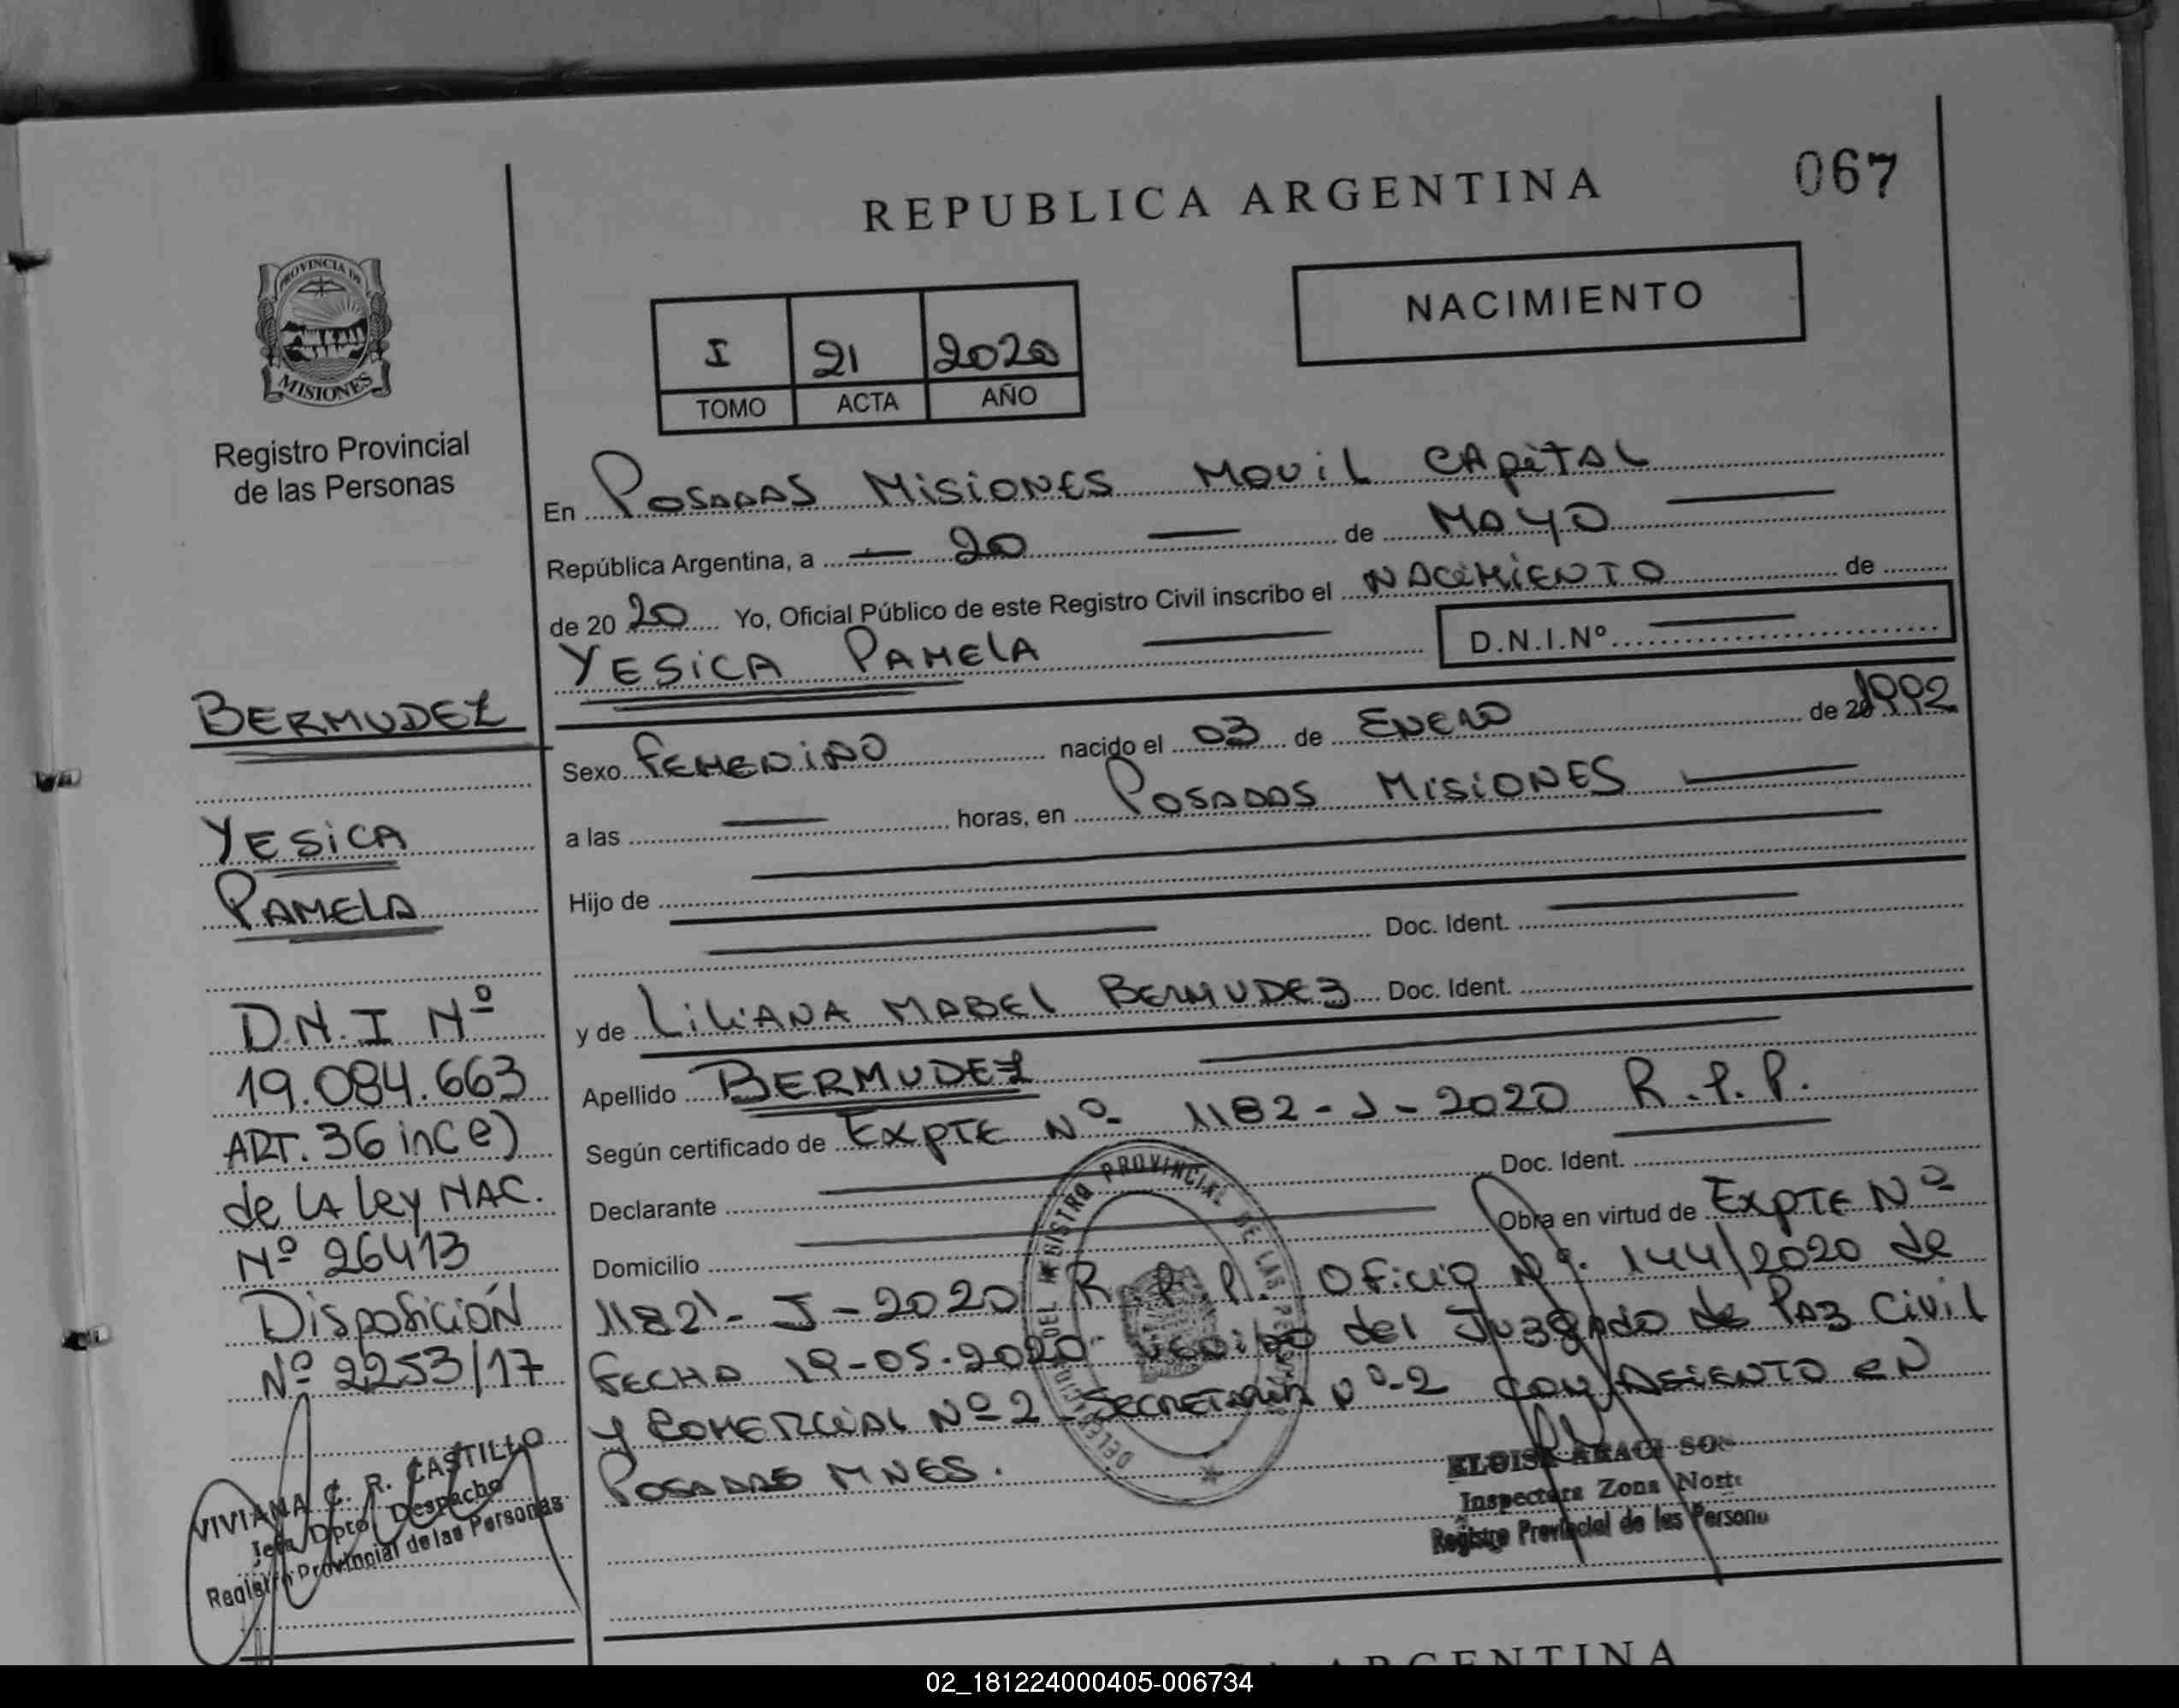 067
REPUBLICA ARGENTINA
NACIMIENTO
I 21 2020
TOMO ACTA AÑO
PROVINCIA DE
MISIONES
Registro Provincial
de las Personas
BERMUDEZ
YESICA
PAMELA
D.N.I Nº
19.084.663
ART. 36 inc e)
de LA Ley NAC.
Nº 26413
Disposición
Nº 2253/17
VIVIANA C. R. CASTILLO
Jefa Dpto Despacho
Registro Provincial de las Personas
En POSADAS MISIONES MOVIL CAPITAL
República Argentina, a 20 de MAYO
de 20 20 Yo, Oficial Público de este Registro Civil inscribo el NACIMIENTO de
YESICA PAMELA D.N.I.Nº
Sexo FEMENINO nacido el 03 de ENERO de 20 1992
a las horas, en POSADAS MISIONES
Hijo de
Doc. Ident.
y de LILIANA MABEL BERMUDEZ Doc. Ident.
Apellido BERMUDEZ
Según certificado de EXPTE Nº 1182-J-2020 R.P.P.
Declarante Doc. Ident.
Domicilio Obra en virtud de EXPTE Nº
1182-J-2020 R.P.P. Oficio Nº 144/2020 de
FECHA 19-05-2020 del Juzgado de PAZ Civil
y COMERCIAL Nº 2 SECRETARIA Nº-2 con ASIENTO EN
POSADAS MNES.
REGISTRO PROVINCIAL DE LAS
Inspectora Zona Norte
Registro Provincial de las Persona
ARGENTINA
02_181224000405-006734